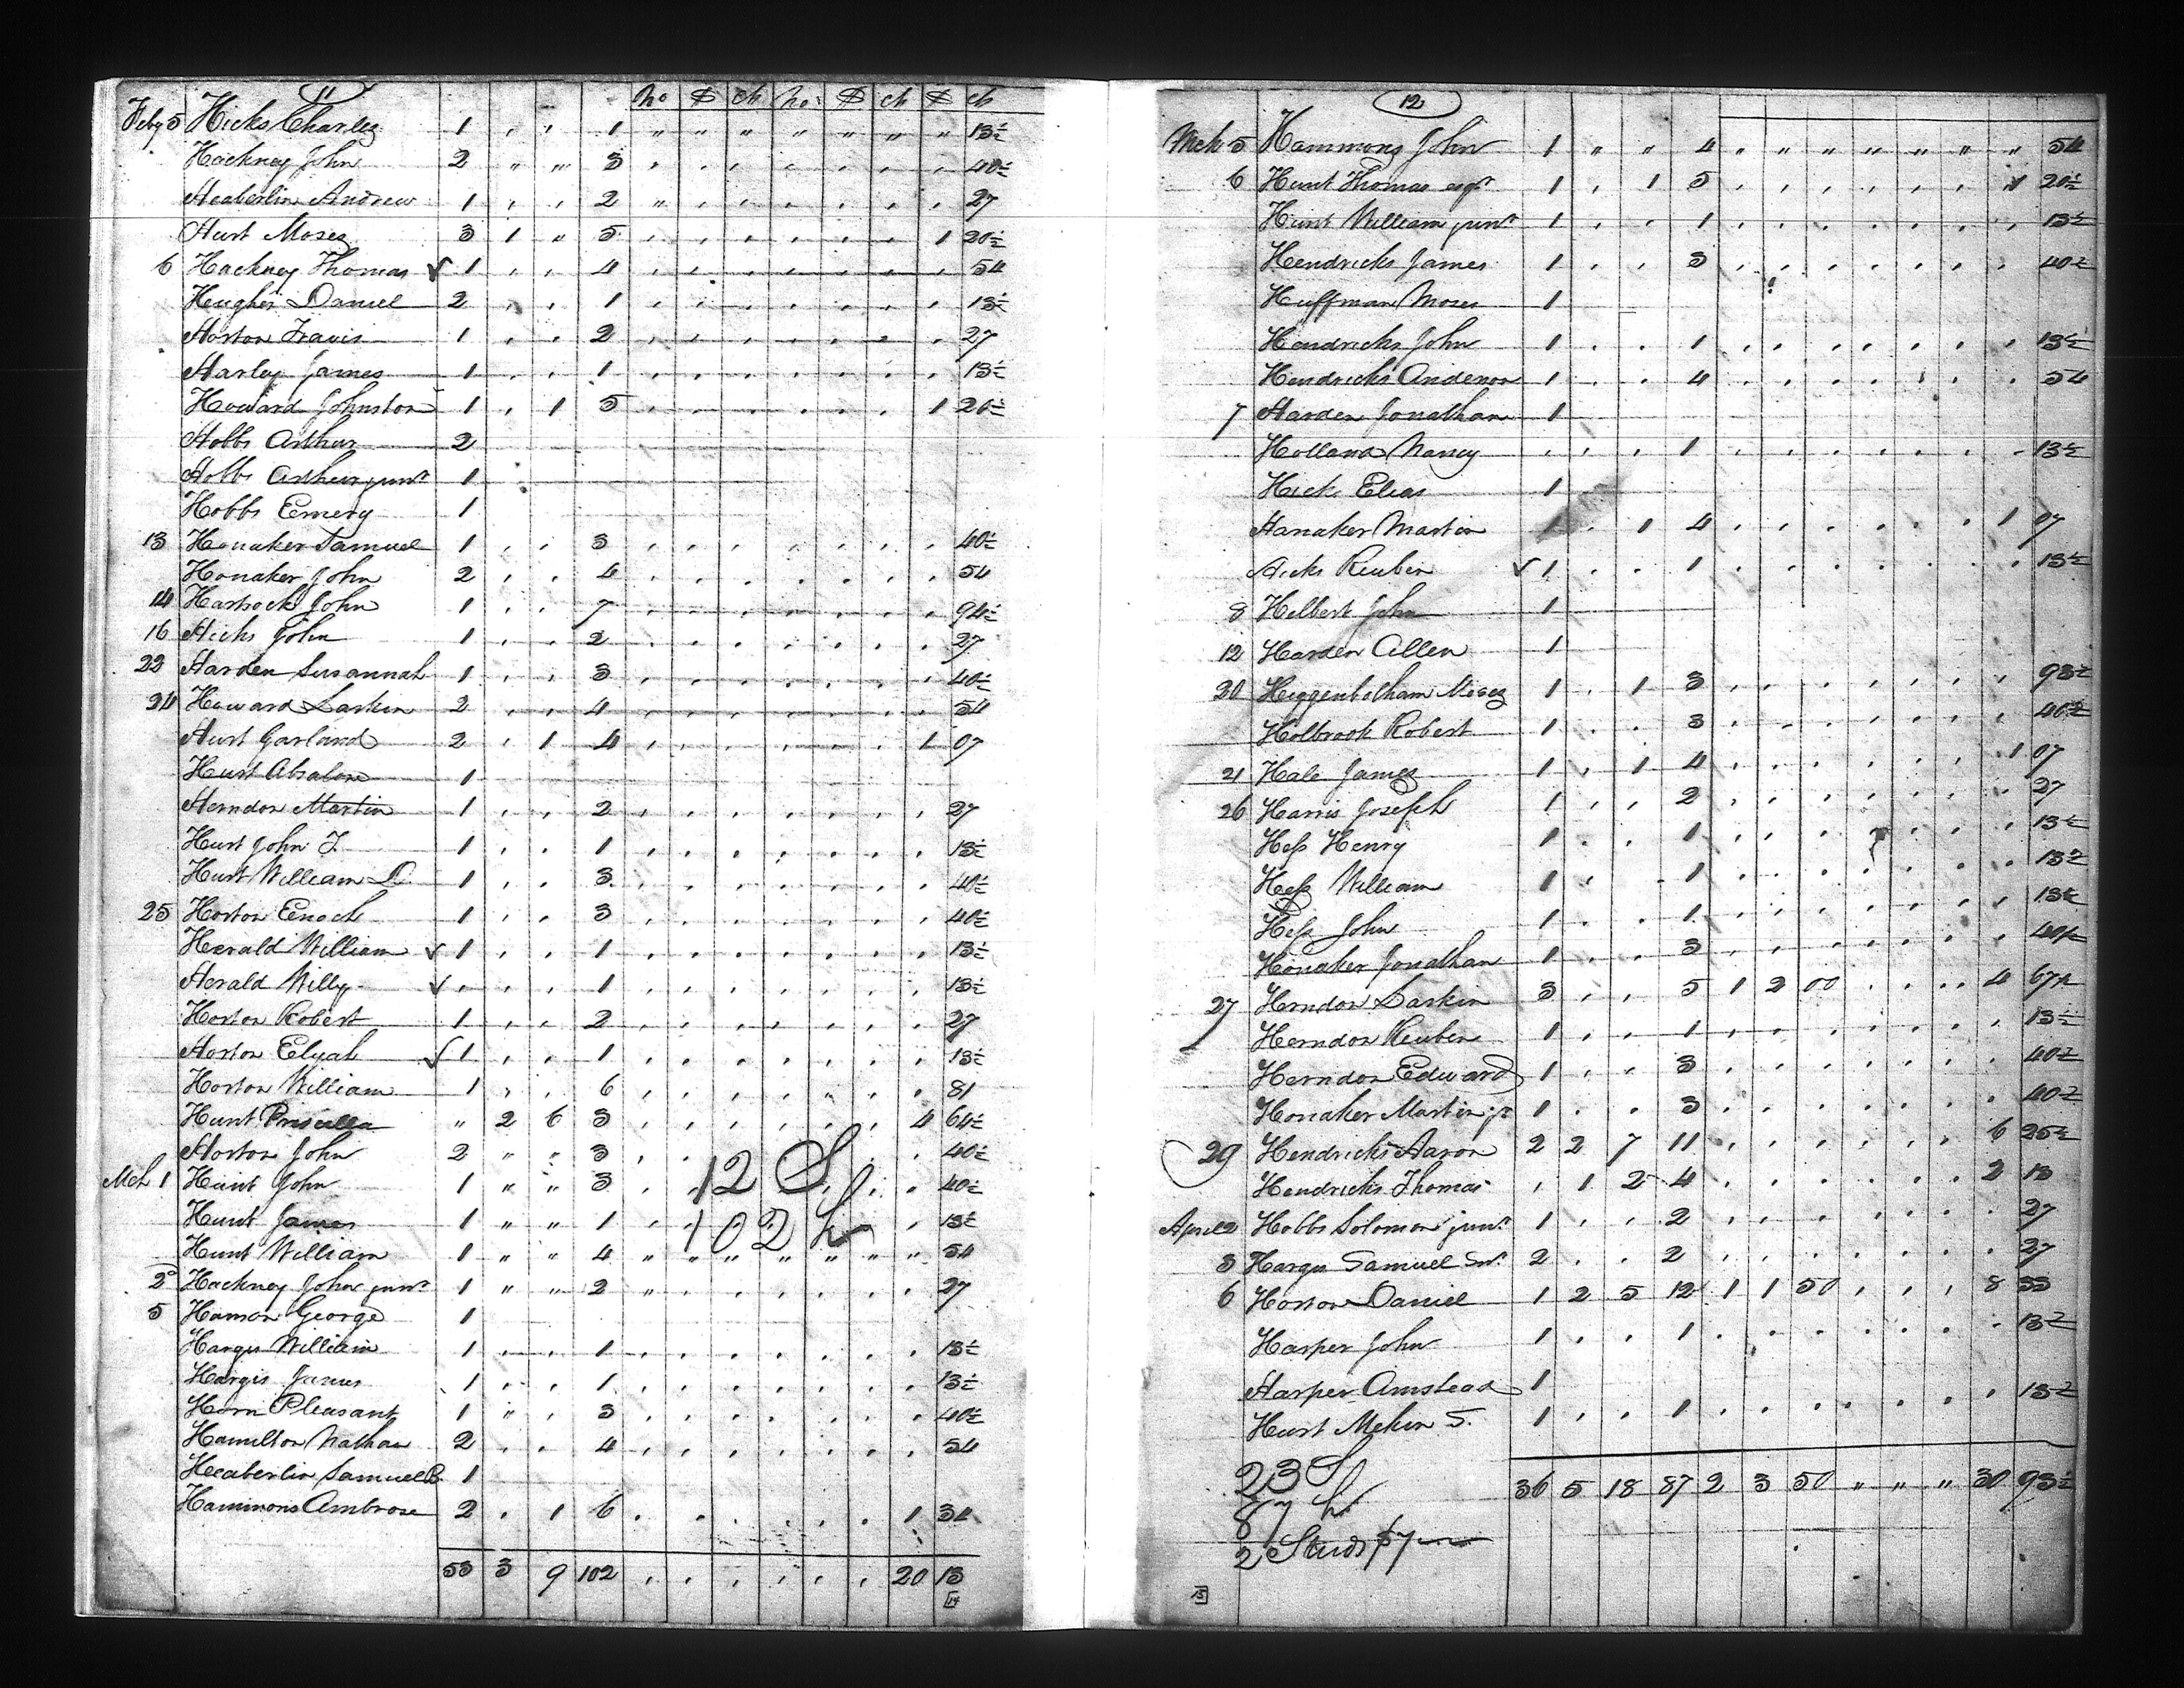 11
no $ cts no: $ cts $ cts
Feby 5 Hicks Charles 1 , , 1 " " " " " " " 13½
Hackney John 2 " " 3 , , , , , , , 40½
Heaberlin Andrew 1 , , 2 " , , , , , , 27
Hurt Moses 3 1 " 5 , , , , , , 1 20½
6 Hackney Thomas ✓ 1 , , 4 , , , , , , , 54
Hughes Daniel 2 , , 1 , , , , , , , 13½
Horton Travis 1 , , 2 , , , , , , , 27
Harley James 1 , , 1 , , , , , , , 13½
Howard Johnston 1 , 1 5 , , , , , , 1 20½
Hobbs Arthur 2
Hobbs Arthur junr 1
Hobbs Emery 1
13 Honaker Samuel 1 , , 3 , , , , , , , 40½
Honaker John 2 , , 4 , , , , , , , 54
14 Hartsock John 1 , , 7 , , , , , , , 94½
16 Hicks John 1 , , 2 , , , , , , , 27
22 Harden Susannah 1 , , 3 , , , , , , , 40½
24 Howard Larkin 2 , , 4 , , , , , , , 54
Hurt Garland 2 , 1 4 , , , , , , 1 07
Hurt Absalom 1
Herndon Martin 1 , , 2 , , , , , , , 27
Hurt John J. 1 , , 1 , , , , , , , 13½
Hurt William D. 1 , , 3 , , , , , , , 40½
25 Horton Enoch 1 , , 3 , , , , , , , 40½
Herald William ✓ 1 , , 1 , , , , , , , 13½
Herald Willy ✓ , , , 1 , , , , , , , 13½
Horton Robert 1 , , 2 , , , , , , , 27
Horton Elijah ✓ 1 , , 1 , , , , , , , 13½
Horton William 1 , , 6 , , , , , , , 81
Hunt Priscilla " 2 6 3 , , , , , , 4 64½
Horton John 2 " " 3 , , , , , , , 40½
12 S
Mch 1 Hunt John 1 " " 3 , , , , , , , 40½
Hunt James 1 " " 1 , , , , , , , 13½
102 h
Hunt William 1 " " 4 " " " " " " " 54
2 Hackney John junr 1 " " 2 " , , , , , , 27
5 Hamon George 1
Hargis William 1 , , 1 , , , , , , , 13½
Hargis James 1 , , 1 , , , , , , , 13½
Horn Pleasant 1 " , 3 , , , , , , , 40½
Hamilton Nathan 2 , , 4 , , , , , , , 54
Heaberlin Samuel B. 1
Hammons Ambrose 2 , 1 6 , , , , , , 1 34
53 3 9 102 , , , , , , 20 13
14
12
Mch 5 Hammons John 1 " " 4 " " " " " " " 54
6 Hunt Thomas esqr 1 , 1 5 , , , , , , 1 20½
Hunt William junr 1 , , 1 , , , , , , , 13½
Hendricks James 1 , , 3 , , , , , , , 40½
Huffman Moses 1
Hendricks John 1 , , 1 , , , , , , , 13½
Hendricks Anderson 1 , , 4 , , , , , , , 54
7 Harden Jonathan 1
Holland Nancy , , , 1 , , , , , , , 13½
Hick Elias 1
Hanaker Martin 1 , 1 4 , , , , , , 1 07
Hicks Reuben ✓ 1 , , 1 , , , , , , , 13½
8 Helbert John 1
12 Harden Allen 1
20 Higgenbotham Moses 1 , 1 3 , , , , , , , 93½
Holbrook Robert 1 , , 3 , , , , , , , 40½
21 Hale James 1 , 1 4 , , , , , , 1 07
26 Harris Joseph 1 , , 2 , , , , , , , 27
Hess Henry 1 , , 1 , , , , , , , 13½
Hess William 1 , , 1 , , , , , , , 13½
Hess John 1 , , 1 , , , , , , , 13½
Honaker Jonathan 1 , , 3 , , , , , , , 40½
27 Herndon Larkin 3 , , 5 1 2 00 , , , 4 67½
Herndon Reuben 1 , , 1 , , , , , , , 13½
Herndon Edward 1 , , 3 , , , , , , , 40½
Honaker Martin jr 1 , , 3 , , , , , , , 40½
29 Hendricks Aaron 2 2 7 11 , , , , , , 6 25½
Hendricks Thomas , 1 2 4 , , , , , , 2 13
April 2 Hobbs Solomon junr 1 , , 2 , , , , , , , 27
3 Hargis Samuel Snr. 2 , , 2 , , , , , , , 27
6 Horton Daniel 1 2 5 12 1 1 50 , , , 8 33
Harper John 1 , , 1 , , , , , , , 13½
Harper Amstead 1
Hurt Mekin S. 1 , , 1 , , , , , , , 13½
23 S
36 5 18 87 2 3 50 " " " 30 93½
87 h
2 Studs $7
15